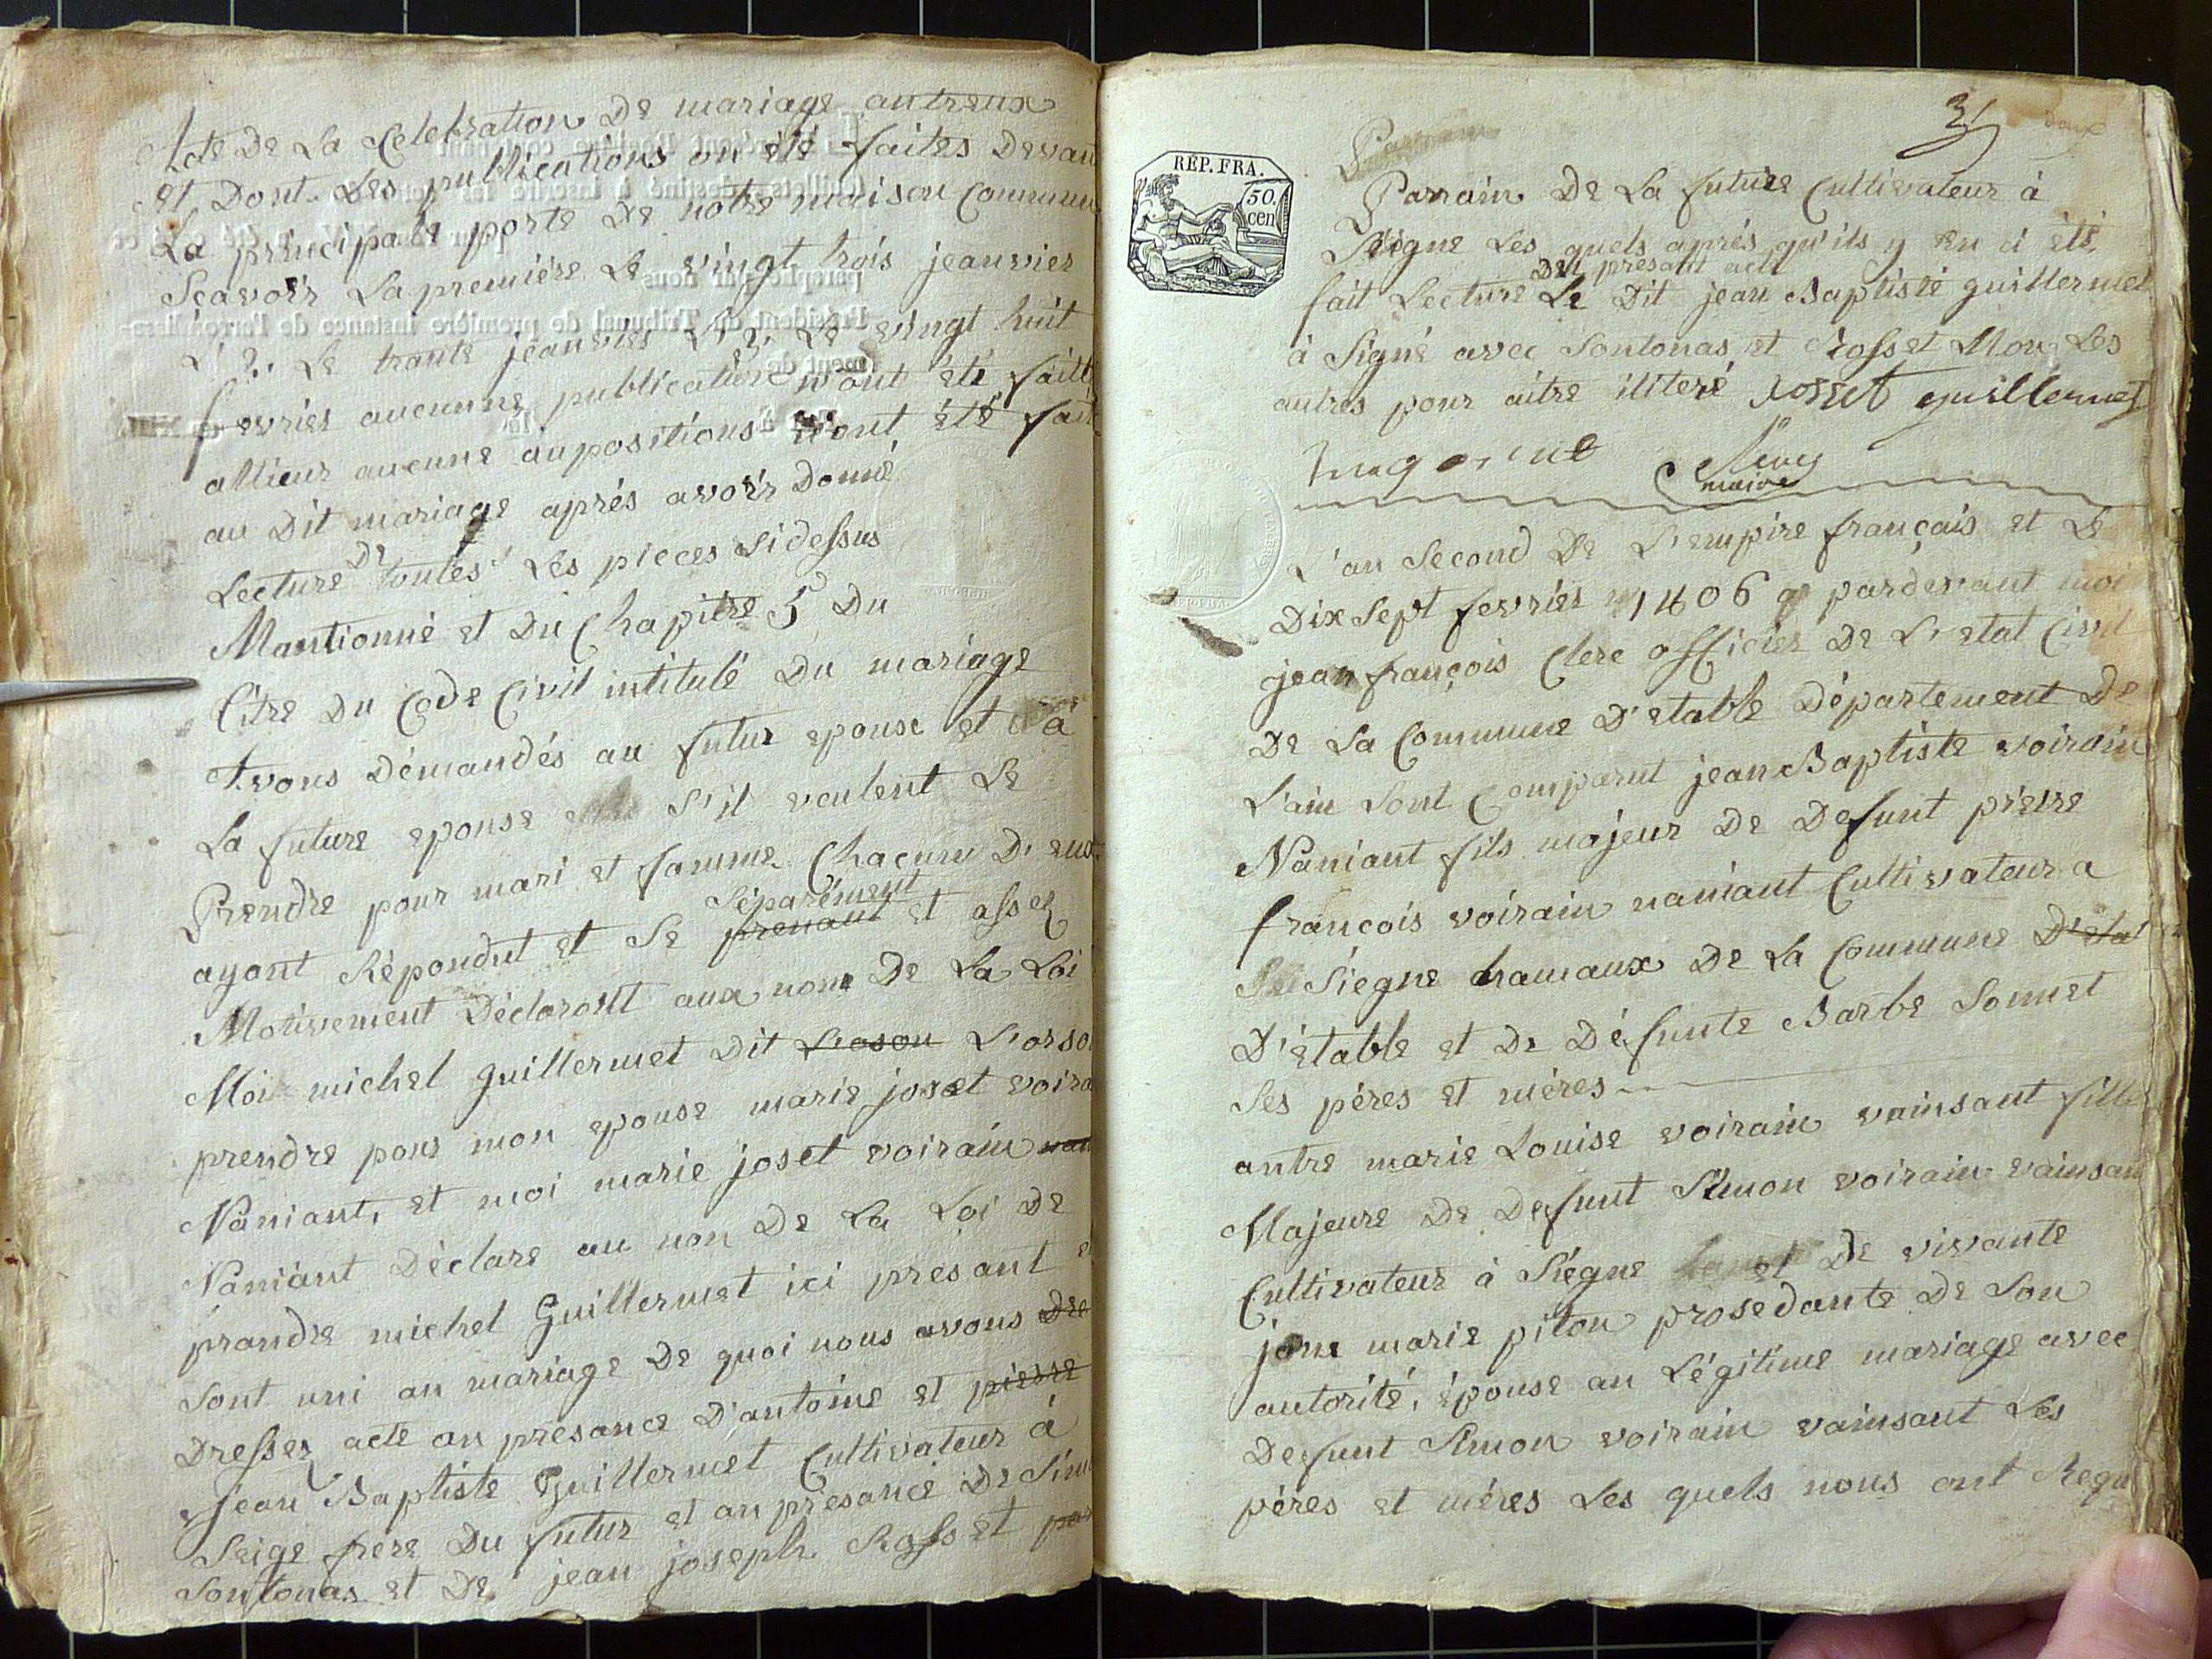 Acte De La Celebration De mariage autreux
et Dont Les publications on été faites Devan
La principale porte De notre maison Commune
Sçavoir La premiére Le vingt trois jeanvier
L'2. Le trante jeanvier Le vingt huit
fevrier aucunne publication n'ont été faitt
allieur aucune aupositions n'ont été fait
au Dit mariage aprés avoir Donné
Lecture De toutes Les pieces Sidessus
Mantionné et Du Chapitre 5 Du
titre Du Code Civil intitulé Du mariage
Avons Démandés au futur epoux et à
La future epouse S'il veulent Le
Prendre pour mari et famme Chacunn D'eux
ayant Répondut et Se prenant Séparément et assez
Motivement Déclaront aux nom De La Loi
Moi michel guillermet Dit L'oson L'orso
prendre pour mon epouse marie joset voira
Naniant, et moi marie joset voirain nan
Naniant Déclare au non De La Loi De
prandre michel Guillermet ici présant
Sont uni an mariage De quoi nous avons Dre
Dresser acte an présance D'antoine et pierre
Jean Baptiste Guillermet Cultivateur à
Seige frere Du futur et an présance De Sim
Sontonas et De jean joseph Rosset par
3
Doux
RÉP. FRA.
50.
cen
Parrain
Parrain De La future Cultivateur à
Siégne Les quels aprés qu'ils y en à été
Du présant acte
fait Lecture Le Dit jean Baptiste guillermet
à Signé avec Sontonas et Rosset Mon Les
autres pour aitre iliteré rosset guillermet
maire
L'an Second De L'empire français et Le
Dix Sept fevrier 1806 pardevant moi
jean françois Clerc officier De L'etat Civil
De La Commune D'etable Département De
L'ain Sont Comparut jean Baptiste voirain
Naniant fils majeur De Defunt pierre
françois voirain naniant Cultivateur a
Siégne hamaux De La Commune D'etat
D'étable et De Défunte Barbe Sonnet
Ses péres et méres
antre marie Louise voirain vainsant fille
Majeure De Defunt Simon voirain vainsan
Cultivateur à Siégne et De vivante
jane marie piton prosedante De Son
autorité, épouse an Légitime mariage avec
Defunt Simon voirain vainsant Les
péres et méres Les quels nous ont Requ